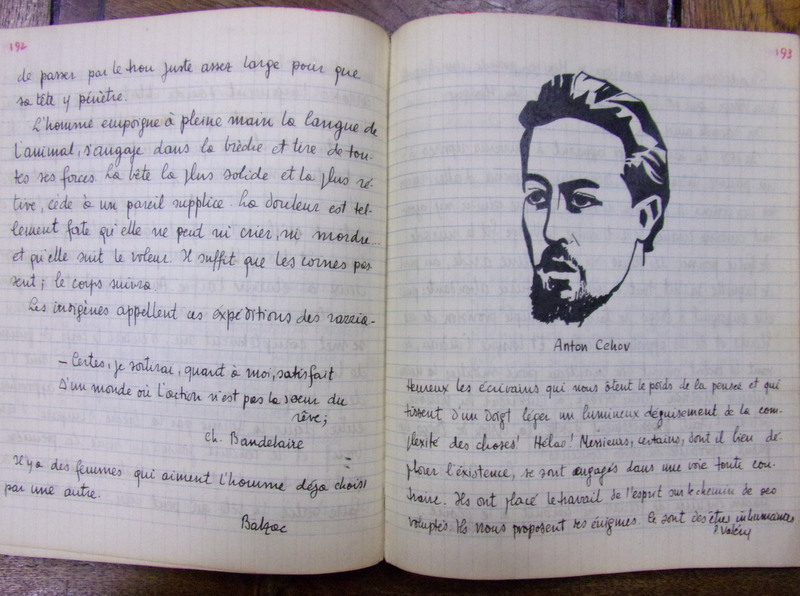 192
de passer par le trou juste assez large pour que
sa tête y pénètre.
L'homme empoigne à pleine main la langue de
l'animal, s'engage dans la brèche et tire de tou-
tes ses forces. La bête la plus solide et la plus ré-
tive, cède à un pareil supplice. La douleur est tel-
lement forte qu'elle ne peut ni crier, ni mordre...
et qu'elle suit le voleur. Il suffit que les cornes pas-
sent; le corps suivra
Les indigènes appellent ces expéditions des razzia-
– Certes, je sortirai, quant à moi, satisfait
D'un monde où l'action n'est pas la sœur du
rêve;
Ch. Baudelaire
Il y a des femmes qui aiment l'homme déjà choisi
par une autre.
Balzac
193
Anton Cehov
Heureux les écrivains qui nous ôtent le poids de la pensée et qui
tissent d'un doigt léger un lumineux déguisement de la com-
plexité des choses! Hélas! Messieurs, certains, dont il bien dé-
plorer l'éxistence, se sont engagés dans une voie toute con-
traire. Ils ont placé le travail de l'esprit sur le chemin de ses
voluptés. Ils nous proposent des énigmes. Ce sont des êtres inhumaines
P. Valéry